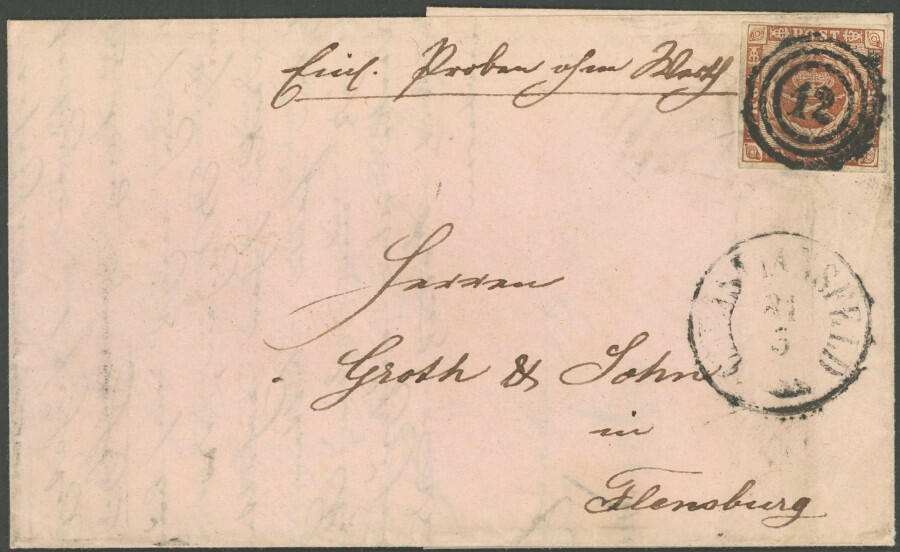 Einl. Proben ohne Werth
POST
12
CHRISTIANSFELD
21
3
Herren
Groth & Sohn
in
Flensburg